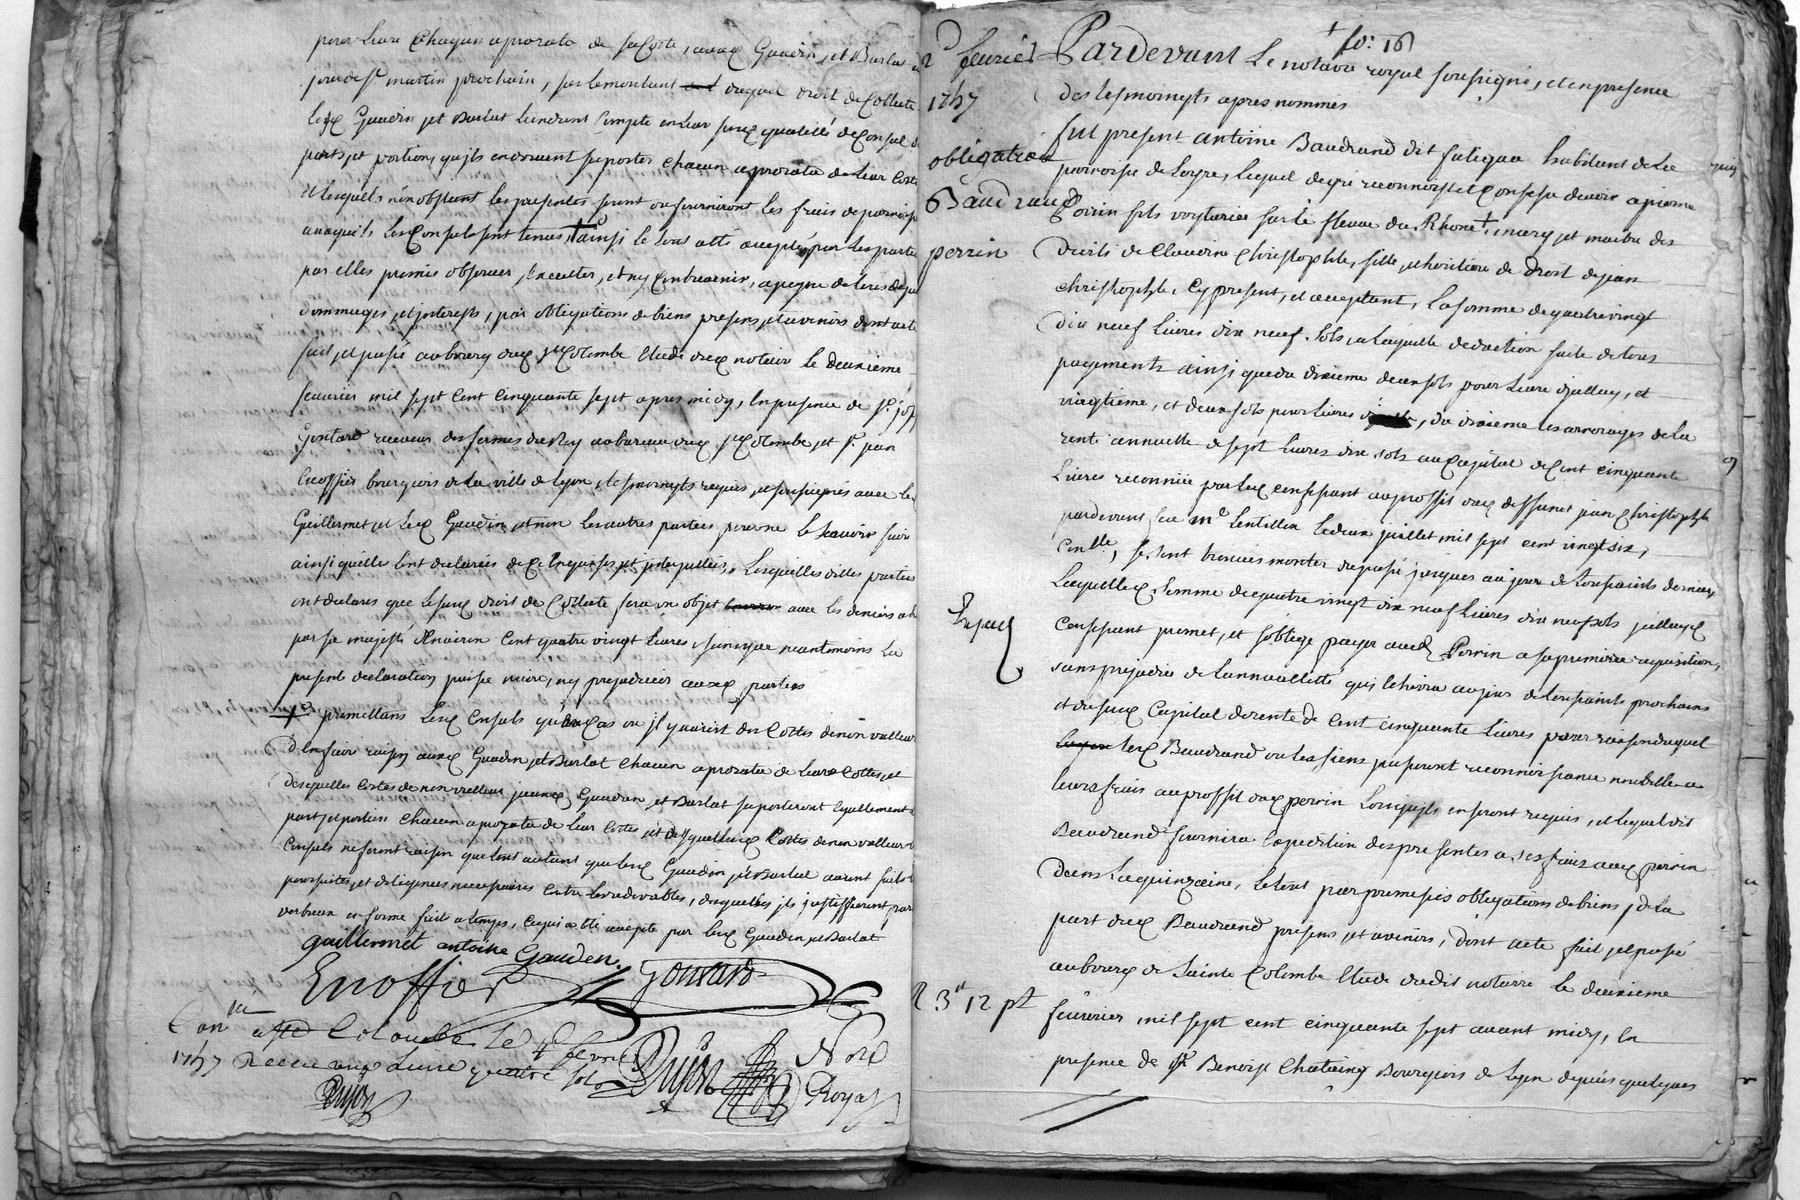 pour livre chacun aprorata de sa Cotte, auxd Gaudin, et Burlat
jour de St martin prochain, sur le montant duquel droit de Collecte
lesd Gaudin et Burlat tiendront Compte en leur susd qualités de Consul
parts, et portions quils en doivent suporter chacun aprorata de leur Cotte
et lesquels nonobstant les presentes seront ou fourniront les frais de paroisse
auxquels les Consuls sont tenus, + ainsi le tout atté accepté par les parties
par elles promis observer, executer, et ny Contrevenir, apeyne de tous depens
dommages, et interests, par obligations de biens presens, et avenirs dont acte
fait, et passé au bourg dud ste Colombe Etude dud notaire le deuxieme
feuvrier mil sept Cent Cinquante sept apres midy, En presence de sr
Gontard receveur des fermes du Roy au bureau dud ste Colombe, et sr jean
Enoffier bourgeois de la ville de Lyon, temoingts requis, et soussignés avec led
Guillermet, et led Gaudin, et non les autres parties pour ne le scavoir faire
ainsi quelle lont declarées de ce Enquises, et interpellées, Lesquelles dittes parties
ont declarés que lesusd droit de Collecte fera un objet avec les deniers
par sa majesté denviron Cent quatre vingt livres, sans que neantmoins la
presente declaration puisse nuire, ny prejudicier auxd parties
+ promettans lesd Consuls quau cas ou il y auroit des Cottes de non valleur
d'En faire raison auxd Gaudin, et Burlat chacun aprorata de leurs Cottes, et
desquelles Cottes de non valleur iceuxd Gaudin et Burlat suporteront egallement
part, et portion chacun aprorata de leur Cottes, et desquelles Cottes de non valleur
Consuls ne feront raison que tout autant que lesd Gaudin, et Burlat auront faits
poursuites, et diligences necessaires Contre les redevables, desquelles ils justiffieront par
verbaux en forme fait a temps, ce qui a été accepté par lesd Gaudin, et Burlat
guillermet antoine Gauden
Enoffier Gontard
Conlé a ste Colombe le 4e fevrier
1757 Receu une Livre quatre sols Dujon Nore
Dujon Royal
+ fo: 16
2e feuvrier
1757
obligation
Baudrand
perrin
Pardevant Le notaire royal soussigné, et en presence
des tesmoingts apres nommés
fut present antoine Baudrand dit habitant de la
paroisse de Loyre, lequel degré reconnoit et Confesse devoir a pierre
Perrin fils voyturier sur le fleuve du Rhone +, mary, et maitre des
droits de Claudine Christophle, fille, et heritiere de droit de jean
christophle, Cy present, et acceptant, La somme de quatre vingt
dix neuf livres dix neuf sols, a laquelle deduction faite de tous
payements ainsi que du dixieme deux sols pour livre dicelluy, et
vingtieme, et deux sols pour livre, du dixieme les arrerages de la
rente annuelle de sept livres dix sols au Capital de Cent Cinquante
Livres reconnüe par led Confessant au proffit dud deffunct jean Christophle
pardevant feu me Lentillon le deux juillet mil sept cent vingt six,
Conllé, se sont trouvés monter du passé jusques au jour de toussaints dernier,
Laquelled somme de quatre vingt dix neuf livres dix neuf sols icelluyd
Confessant promet, et s'oblige payer aud Perrin a sa premiere requisition,
sans prejudice de l'annuallitté qui Echerra au jour de toussaints prochains
et du susd Capital de rente de Cent Cinquante livres pour raison duquel
led Baudrand ou les siens passeront reconnoissance nouvelle a
leurs frais au proffit dud perrin Lorsquils en seront requis, et lequel dit
Baudrand fournira Expedition des presentes a ses frais aud perrin
dans La quinzaine, le tout par promesses obligations de biens, de la
part dud Baudrand presens, et avenirs, dont acte fait, et passé
au bourg de sainte Colombe Etude dudit notaire le deuxieme
feuvrier mil sept cent cinquante sept avant midy, en
presence de sr Benoit Chataing Bourgeois de Lyon depuis quelques
R 3tt 12 pt